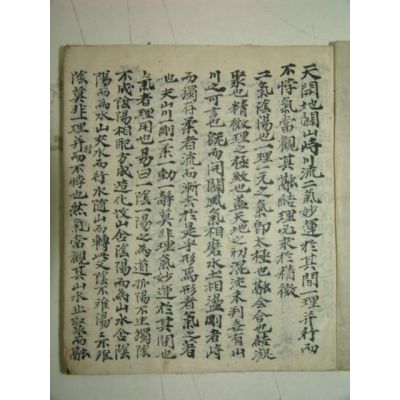 天開地闢山峙川流二氣妙運於其間一理并行而
不悖氣當觀其融結理必求於精微
二氣陰陽也一理一元之氣卽太極也融會合也結凝
聚也精微理之極致也盖天地之初混沌未判安有山
川之可言也旣而開闢風氣相磨水土相盪剛者峙
而獨存柔者流而漸去於是乎形焉形者氣之著
也夫山川一剛一柔一動一靜莫非理氣妙運於其間也
氣者理用也易曰一陰一陽之爲道孤陽不生獨陰
不成陰陽相配方成造化故山含陰陽而爲山水含陰
陽而爲水山夾水而行水隨山而轉此又陰不離陽陽不離
陰莫非理并行而不悖也然氣當觀其山水止聚而融